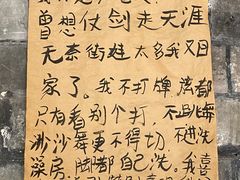 曾想仗剑走天涯
无奈街娃太多我又回
家了。我不打牌，落都
只有看别个打，不跳舞
沙沙舞更不得切，不进洗
澡房，脚都自己洗。我喜